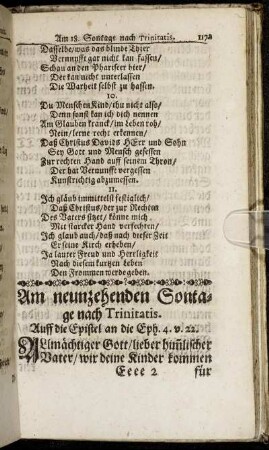 Am 18. Sontage nach Trinitatis.
Dasselbe/was das blinde Thier
Vernunfft gar nicht kan fassen/
Schau an den Phariseer hier/
Der kan nicht unterlassen
Die Warheit selbst zu hassen.
10.
Du Menschen Kind/thu nicht also/
Denn sonst kan ich dich nennen
Am Glauben kranck/im Leben roh/
Nein/lerne recht erkennen/
Daß Christus Davids HErr und Sohn
Sey Gott und Mensch gesessen
Zur rechten Hand auff seinem Thron/
Der hat Vernunfft vergessen
Kunstrichtig abzumessen.
11.
Ich gläub immittelst festiglich/
Daß Christus/der zur Rechten
Des Vaters sitzet/könne mich
Mit starcker Hand verfechten/
Ich glaub auch/daß nach dieser Zeit
Er seine Kirch erheben/
Ja lauter Freud und Herrligkeit
Nach diesem kurtzen Leben
Den Frommen werde geben.
Am neunzehenden Sonta-
ge nach Trinitatis.
Auff die Epistel an die Eph. 4. v. 22.
ALmächtiger Gott/lieber him̃lischer
Vater/wir deine Kinder kommen
Eeee 2 für